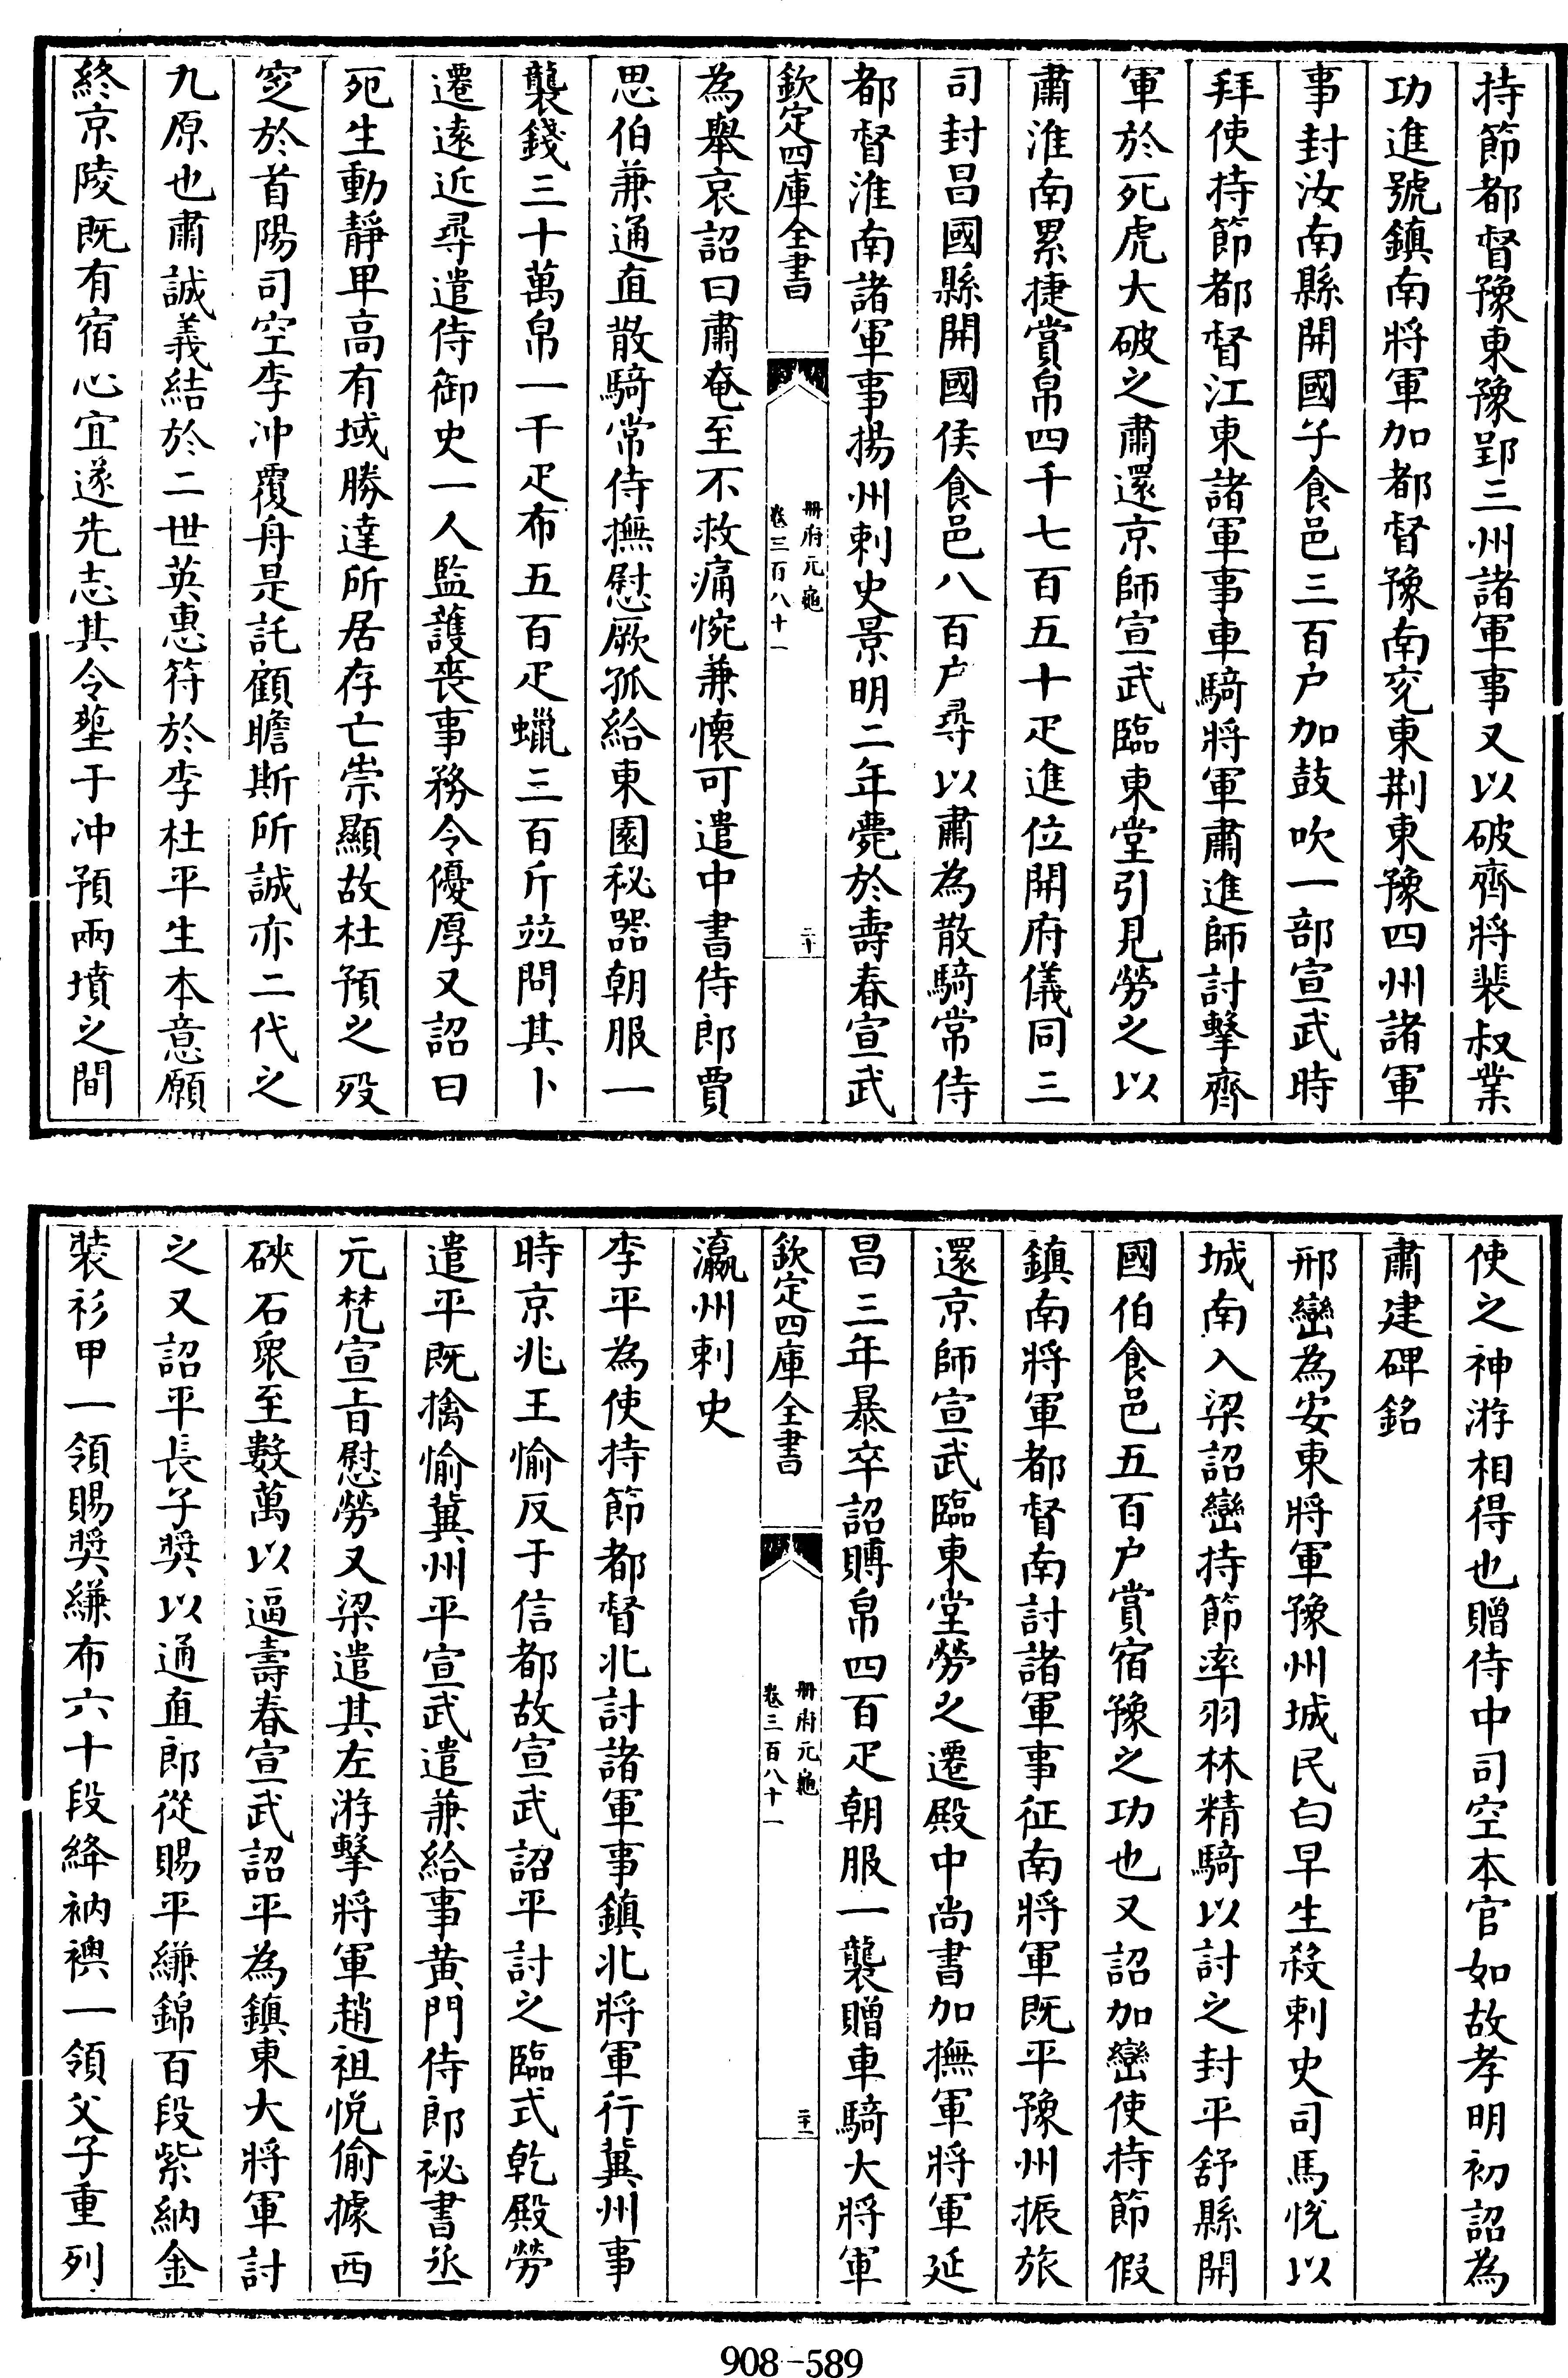 持節都督豫東豫郢三州諸軍事又以破齊將裴叔業
功進號鎮南將軍加都督豫南兖東荆東豫四州諸軍
事封汝南縣開國子食邑三百户加鼓吹一部宣武時
拜使持節都督江東諸軍事車騎將軍肅進師討擊齊
軍於死虎大破之肅還京師宣武臨東堂引見勞之以
肅淮南累捷賞帛四千七百五十疋進位開府儀同三
司封昌國縣開國侯食邑八百户尋以肅為散騎常侍
都督淮南諸軍事揚州刺史景明二年薨於壽春宣武
欽定四庫全書
册府元龜
卷三百八十一
二十
為舉哀詔曰肅奄至不救痛惋兼懷可遣中書侍郎賈
思伯兼通直散騎常侍撫慰厥孤給東園秘器朝服一
襲錢三十萬帛一千疋布五百疋蠟三百斤竝問其卜
遷遠近尋遣侍御史一人監護喪事務令優厚又詔曰
死生動靜卑高有域勝達所居存亡崇顯故杜預之歿
窆於首陽司空李冲覆舟是託顧瞻斯所誠亦二代之
九原也肅誠義結於二世英惠符於李杜平生本意願
終京陵既有宿心宜遂先志其令塟于冲預兩墳之間
使之神游相得也贈侍中司空本官如故孝明初詔為
肅建碑銘
邢巒為安東將軍豫州城民白早生殺刺史司馬悅以
城南入梁詔巒持節率羽林精騎以討之封平舒縣開
國伯食邑五百户賞宿豫之功也又詔加巒使持節假
鎮南將軍都督南討諸軍事征南將軍既平豫州振旅
還京師宣武臨東堂勞之遷殿中尚書加撫軍將軍延
昌三年暴卒詔賻帛四百疋朝服一襲贈車騎大將軍
欽定四庫全書
册府元龜
卷三百八十一
二十一
瀛州刺史
李平為使持節都督北討諸軍事鎮北將軍行冀州事
時京兆王愉反于信都故宣武詔平討之臨式乾殿勞
遣平既擒愉冀州平宣武遣兼給事黄門侍郎祕書丞
元梵宣旨慰勞又梁遣其左游擊將軍趙祖悅偷據西
硤石衆至數萬以逼壽春宣武詔平為鎮東大將軍討
之又詔平長子奬以通直郎從賜平縑錦百段紫納金
装衫甲一領賜奬縑布六十段絳衲襖一領父子重列
908－589